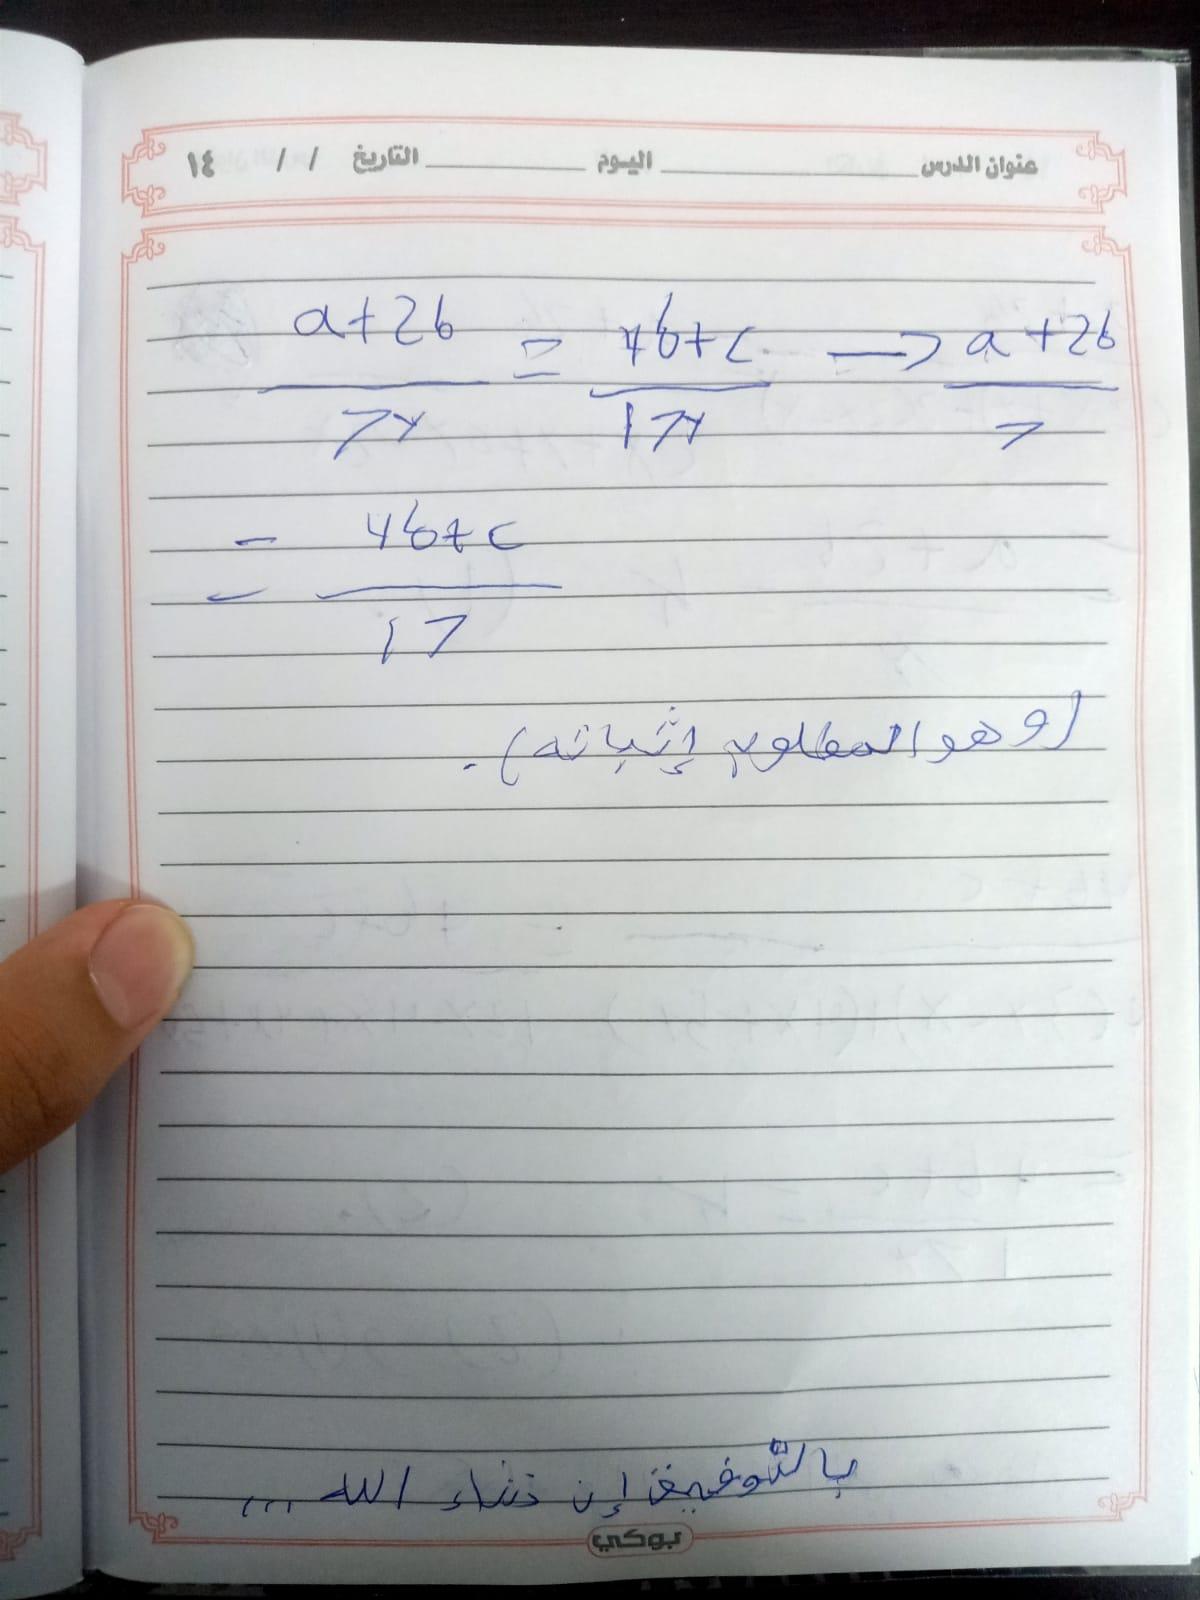 عنوان الدرس اليوم التاريخ / / ١٤
a+2b = 4b+c → a+2b
7x 17x 7
= 4b+c
17
(وهو المطلوب إثباته).
بالتوفيق إن شاء الله ...
بوكي